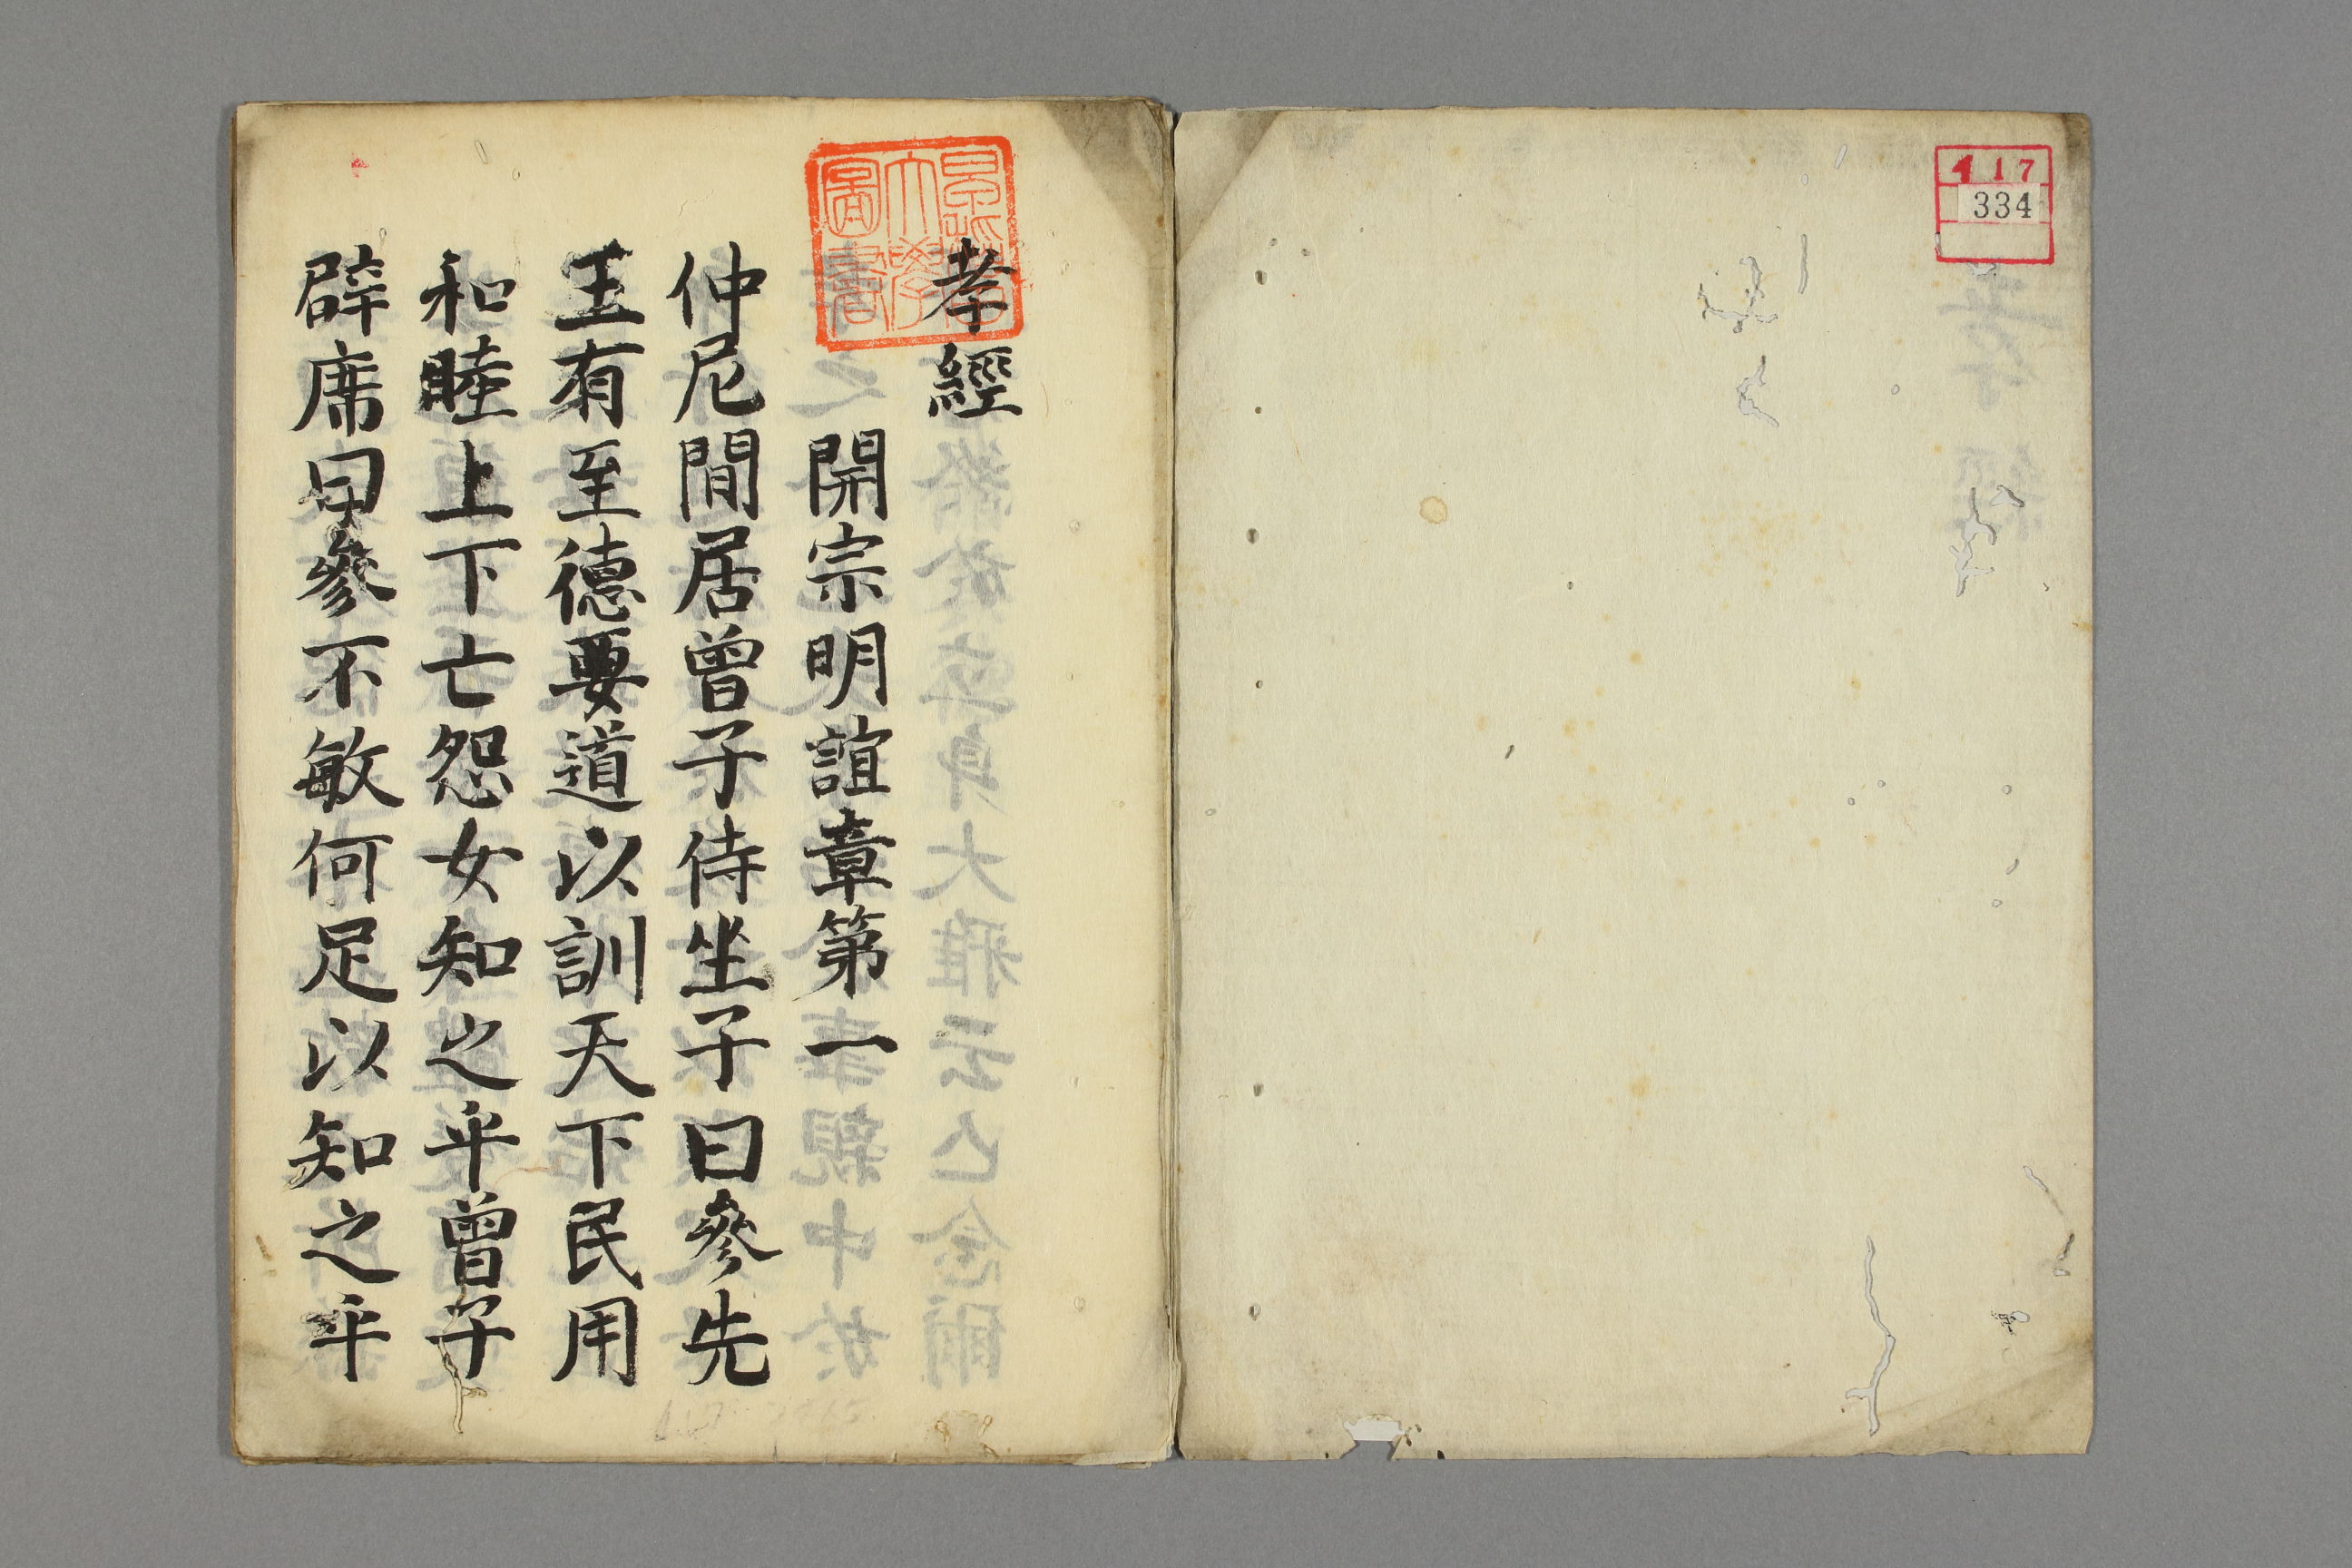 417
334
孝經
開宗明誼章第一
仲尼間居曾子侍坐子曰參先
王有至德要道以訓天下民用
和睦上下亡怨女知之乎曾子
辟席曰參不敏何足以知之乎